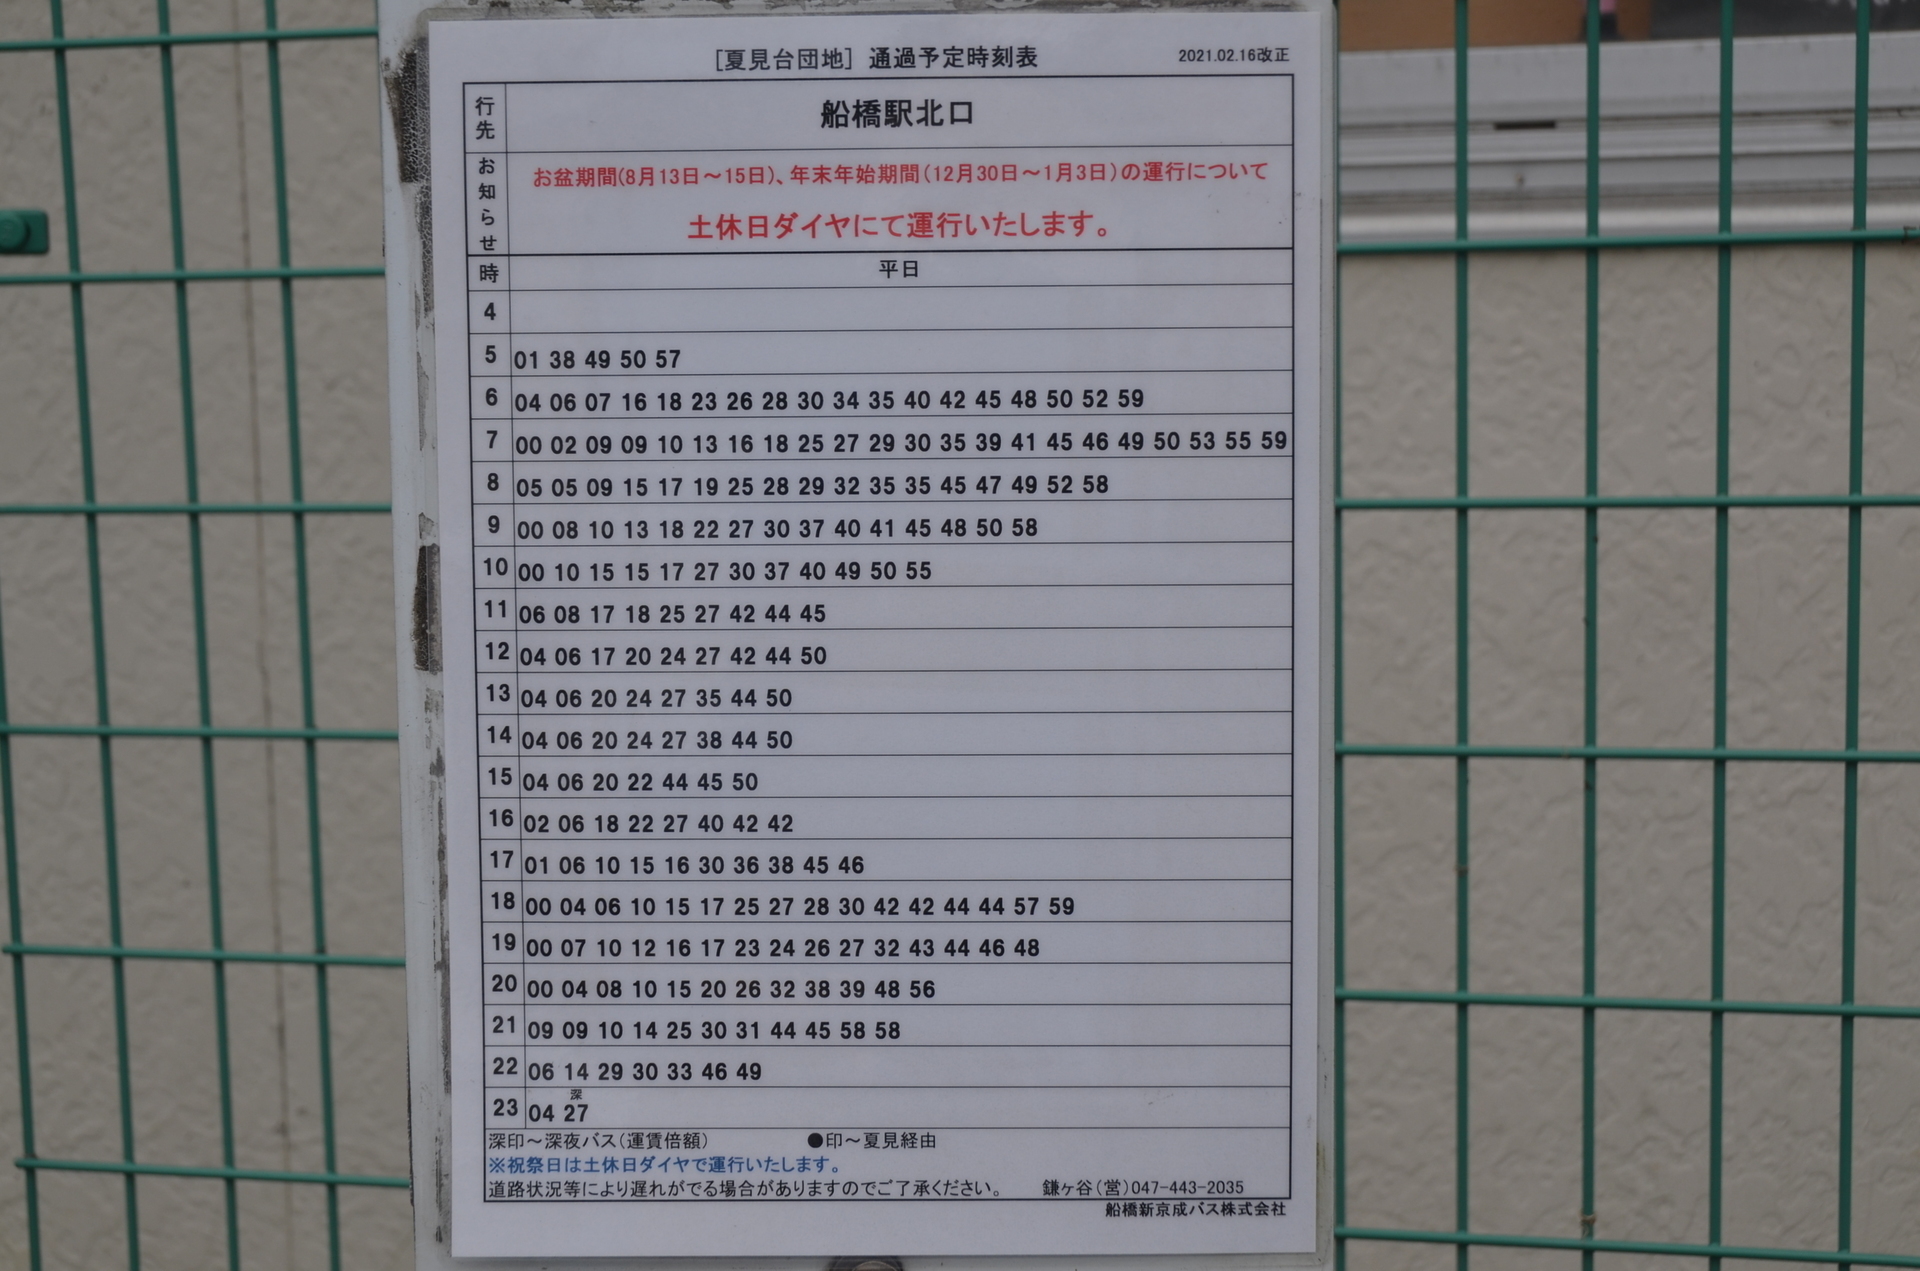 [夏見台団地] 通過予定時刻表 2021.02.16改正
行先 船橋駅北口
お知らせ お盆期間(8月13日～15日)、年末年始期間(12月30日～1月3日)の運行について
土休日ダイヤにて運行いたします。
時 平日
4
5 01 38 49 50 57
6 04 06 07 16 18 23 26 28 30 34 35 40 42 45 48 50 52 59
7 00 02 09 09 10 13 16 18 25 27 29 30 35 39 41 45 46 49 50 53 55 59
8 05 05 09 15 17 19 25 28 29 32 35 35 45 47 49 52 58
9 00 08 10 13 18 22 27 30 37 40 41 45 48 50 58
10 00 10 15 15 17 27 30 37 40 49 50 55
11 06 08 17 18 25 27 42 44 45
12 04 06 17 20 24 27 42 44 50
13 04 06 20 24 27 35 44 50
14 04 06 20 24 27 38 44 50
15 04 06 20 22 44 45 50
16 02 06 18 22 27 40 42 42
17 01 06 10 15 16 30 36 38 45 46
18 00 04 06 10 15 17 25 27 28 30 42 42 44 44 57 59
19 00 07 10 12 16 17 23 24 26 27 32 43 44 46 48
20 00 04 08 10 15 20 26 32 38 39 48 56
21 09 09 10 14 25 30 31 44 45 58 58
22 06 14 29 30 33 46 49
深
23 04 27
深印～深夜バス(運賃倍額) ●印～夏見経由
※祝祭日は土休日ダイヤで運行いたします。
道路状況等により遅れがでる場合がありますのでご了承ください。 鎌ヶ谷(営)047-443-2035
船橋新京成バス株式会社